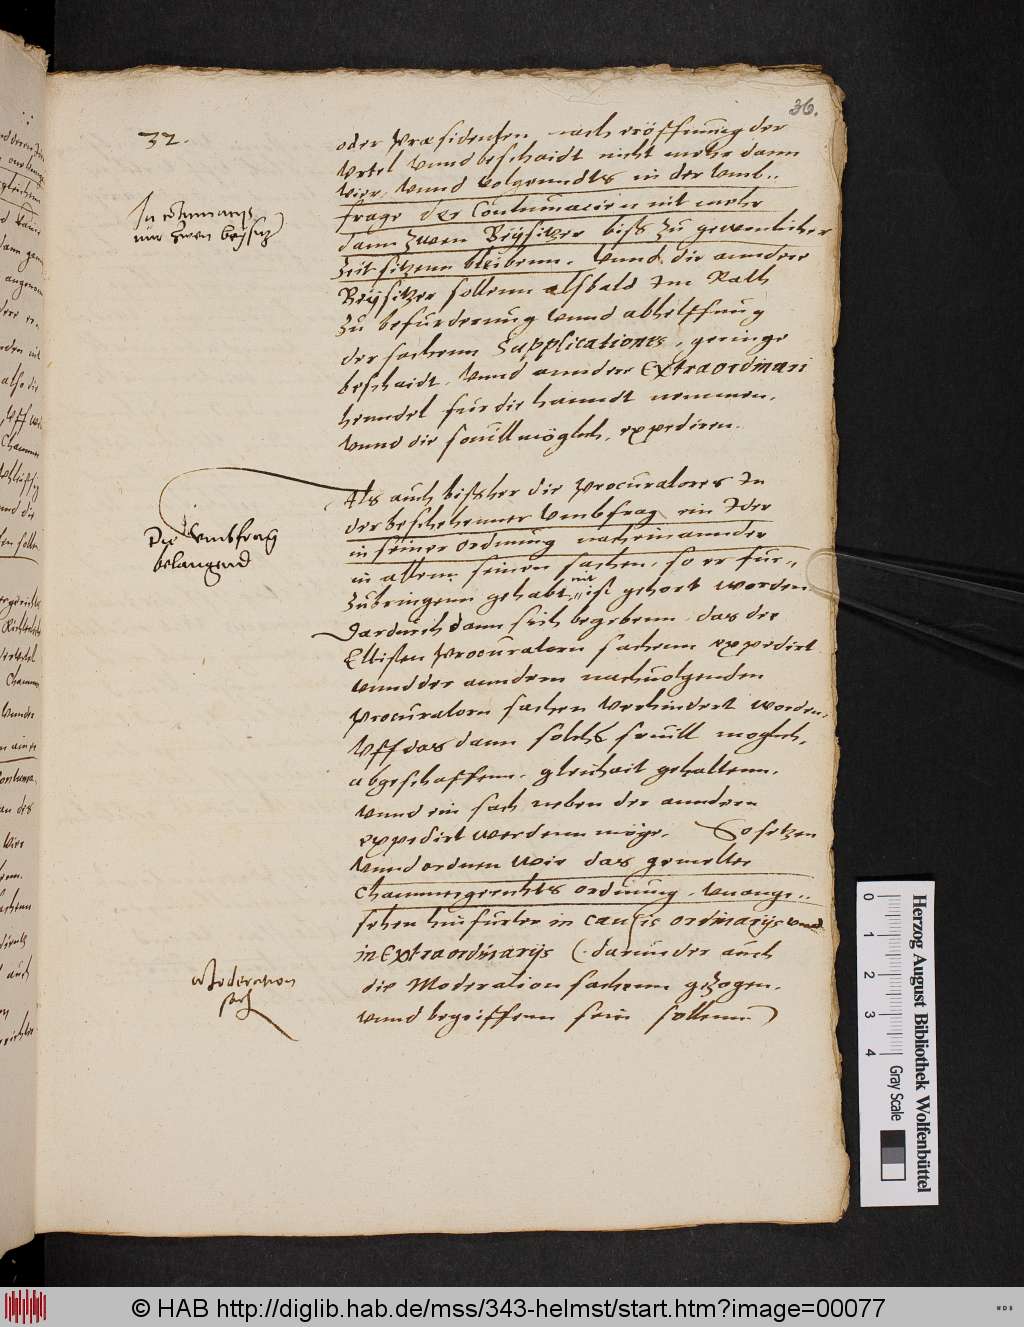 36.
32.
oder Præsidenten nach eröffnung der
Vrtel vnnd beschaidt nicht mehr dann
vier, vnnd volgenndts in der vmb-
frage der Contumacien nit mehr
dann zwen Beÿsitzer biß zu gewonlicher
Zeit sitzenn bleibenn. vnnd die anndere
Beÿsitzer sollenn alsbald Im Rath
zu befurderung vnnd abhelffung
der sachenn Supplicationes, geringe
beschaidt, vnnd anndere Extraordinari
henndel fur die hanndt nemmen,
vnnd die souill möglich, expediren.
In
nur zwen beysitz
Als auch bißher die Procuratores In
der beschehenner vmbfrag ein Jder
in seiner ordnung nacheinannder
in allenn seinen sachen, so er fur-
zubringenn gehabt, mit ist gehort worden
Dardurch dann sich begebenn das der
Elltisten Procuratorn sachenn expedirt
vnnd der anndern nachuolgenden
Procuratorn sachen verhindert worden,
Vff das dann solchs souill moglich,
abgeschaffenn, gleichait gehalltenn,
vnnd ein sach neben der anndern
expedirt werdenn möge, So setzen
vnnd ordnen wir das gemelter
Chammergerichts ordnung, vnange-
sehen hinfurter in causis ordinarijs vnd
in Extraordinarijs (darunder auch
die Moderation sachenn gezogen,
vnnd begriffenn sein sollenn)
Die vmbfrag
belangend
Moderation
sach
Herzog August Bibliothek Wolfenbüttel
0 1 2 3 4 Gray Scale
© HAB http://diglib.hab.de/mss/343-helmst/start.htm?image=00077
WDB